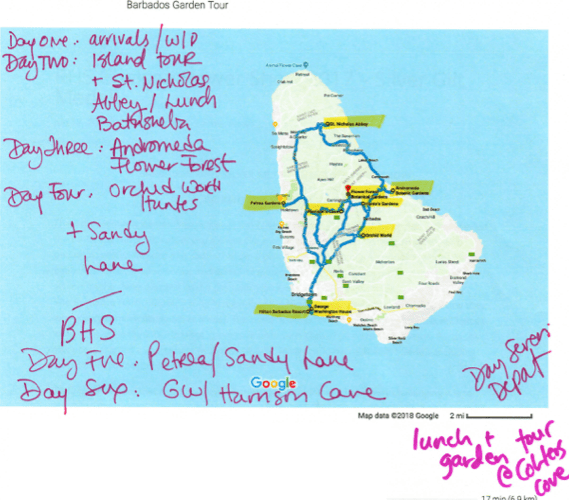 Barbados Garden Tour
Day one: arrivals / W/D
Day Two: Island tour
+ St. Nicholas
Abbey / Lunch
Bathsheba
Day Three: Andromeda
Flower Forest
Day Four. Orchid World
Huntes
+ Sandy
Lane
BHS
Day Five. Petrea/Sandy Lane
Day Six: GW/Harrison Cave
Day Seven
Depart
St. Nicholas Abbey
Andromeda
Botanic Gardens
Flower Forest
Botanical Gardens
Hunte's Gardens
Petrea Gardens
Orchid World
Bridgetown
Hilton Barbados Resort
George
Washington House
Google
Map data ©2018 Google 2 mi
lunch + tour
garden
@ Coblers
Cove
17 min (6.9 km)